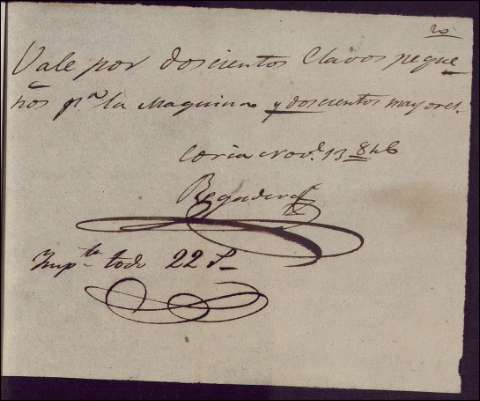 Vale por doscientos Clavos peque
ños pª la Maquina y doscientos mayores.
Coria Novᵉ 13 846
Regadera
Impᵗᵉ todo 22 rˢ